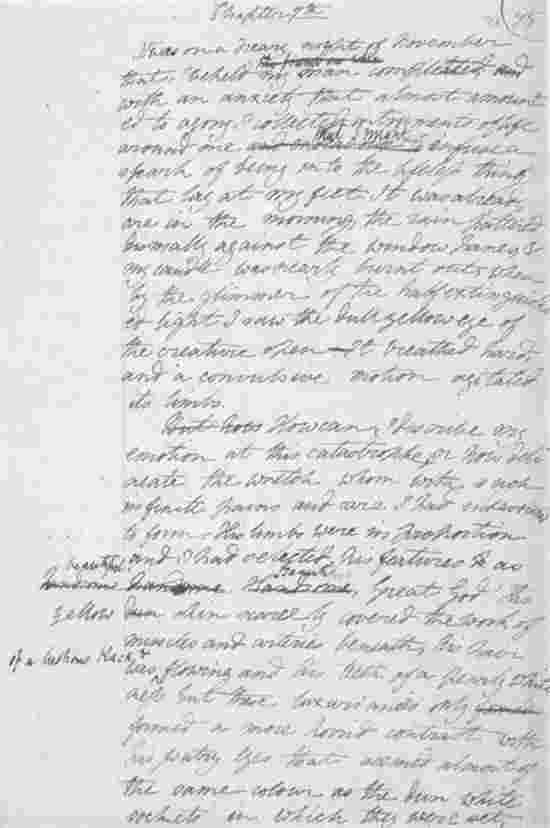 Chapter 7th
It was on a dreary night of November
that I beheld my man completed, and
with an anxiety that almost amount
ed to agony I collected instruments of life
around me that I might infuse a
spark of being into the lifeless thing
that lay at my feet. It was already
one in the morning, the rain pattered
dismally against the window panes &
my candle was nearly burnt out, when
by the glimmer of the half extinguish
ed light I saw the dull yellow eye of
the creature open — It breathed hard,
and a convulsive motion agitated
its limbs.
But how How can I describe my
emotion at this catastrophe, or how deli
neate the wretch whom with such
infinite pains and care I had endeavoured
to form. His limbs were in proportion
and I had selected his features as
beautiful
handsome handsome Handsome. Great God! His
yellow skin scarcely covered the work of
muscles and arteries beneath; his hair
of a lustrous black, &
was flowing and his teeth of a pearly white
ness but these luxuriances only
formed a more horrid contrast with
his watry eyes that seemed almost of
the same colour as the dun white
sockets in which they were set,